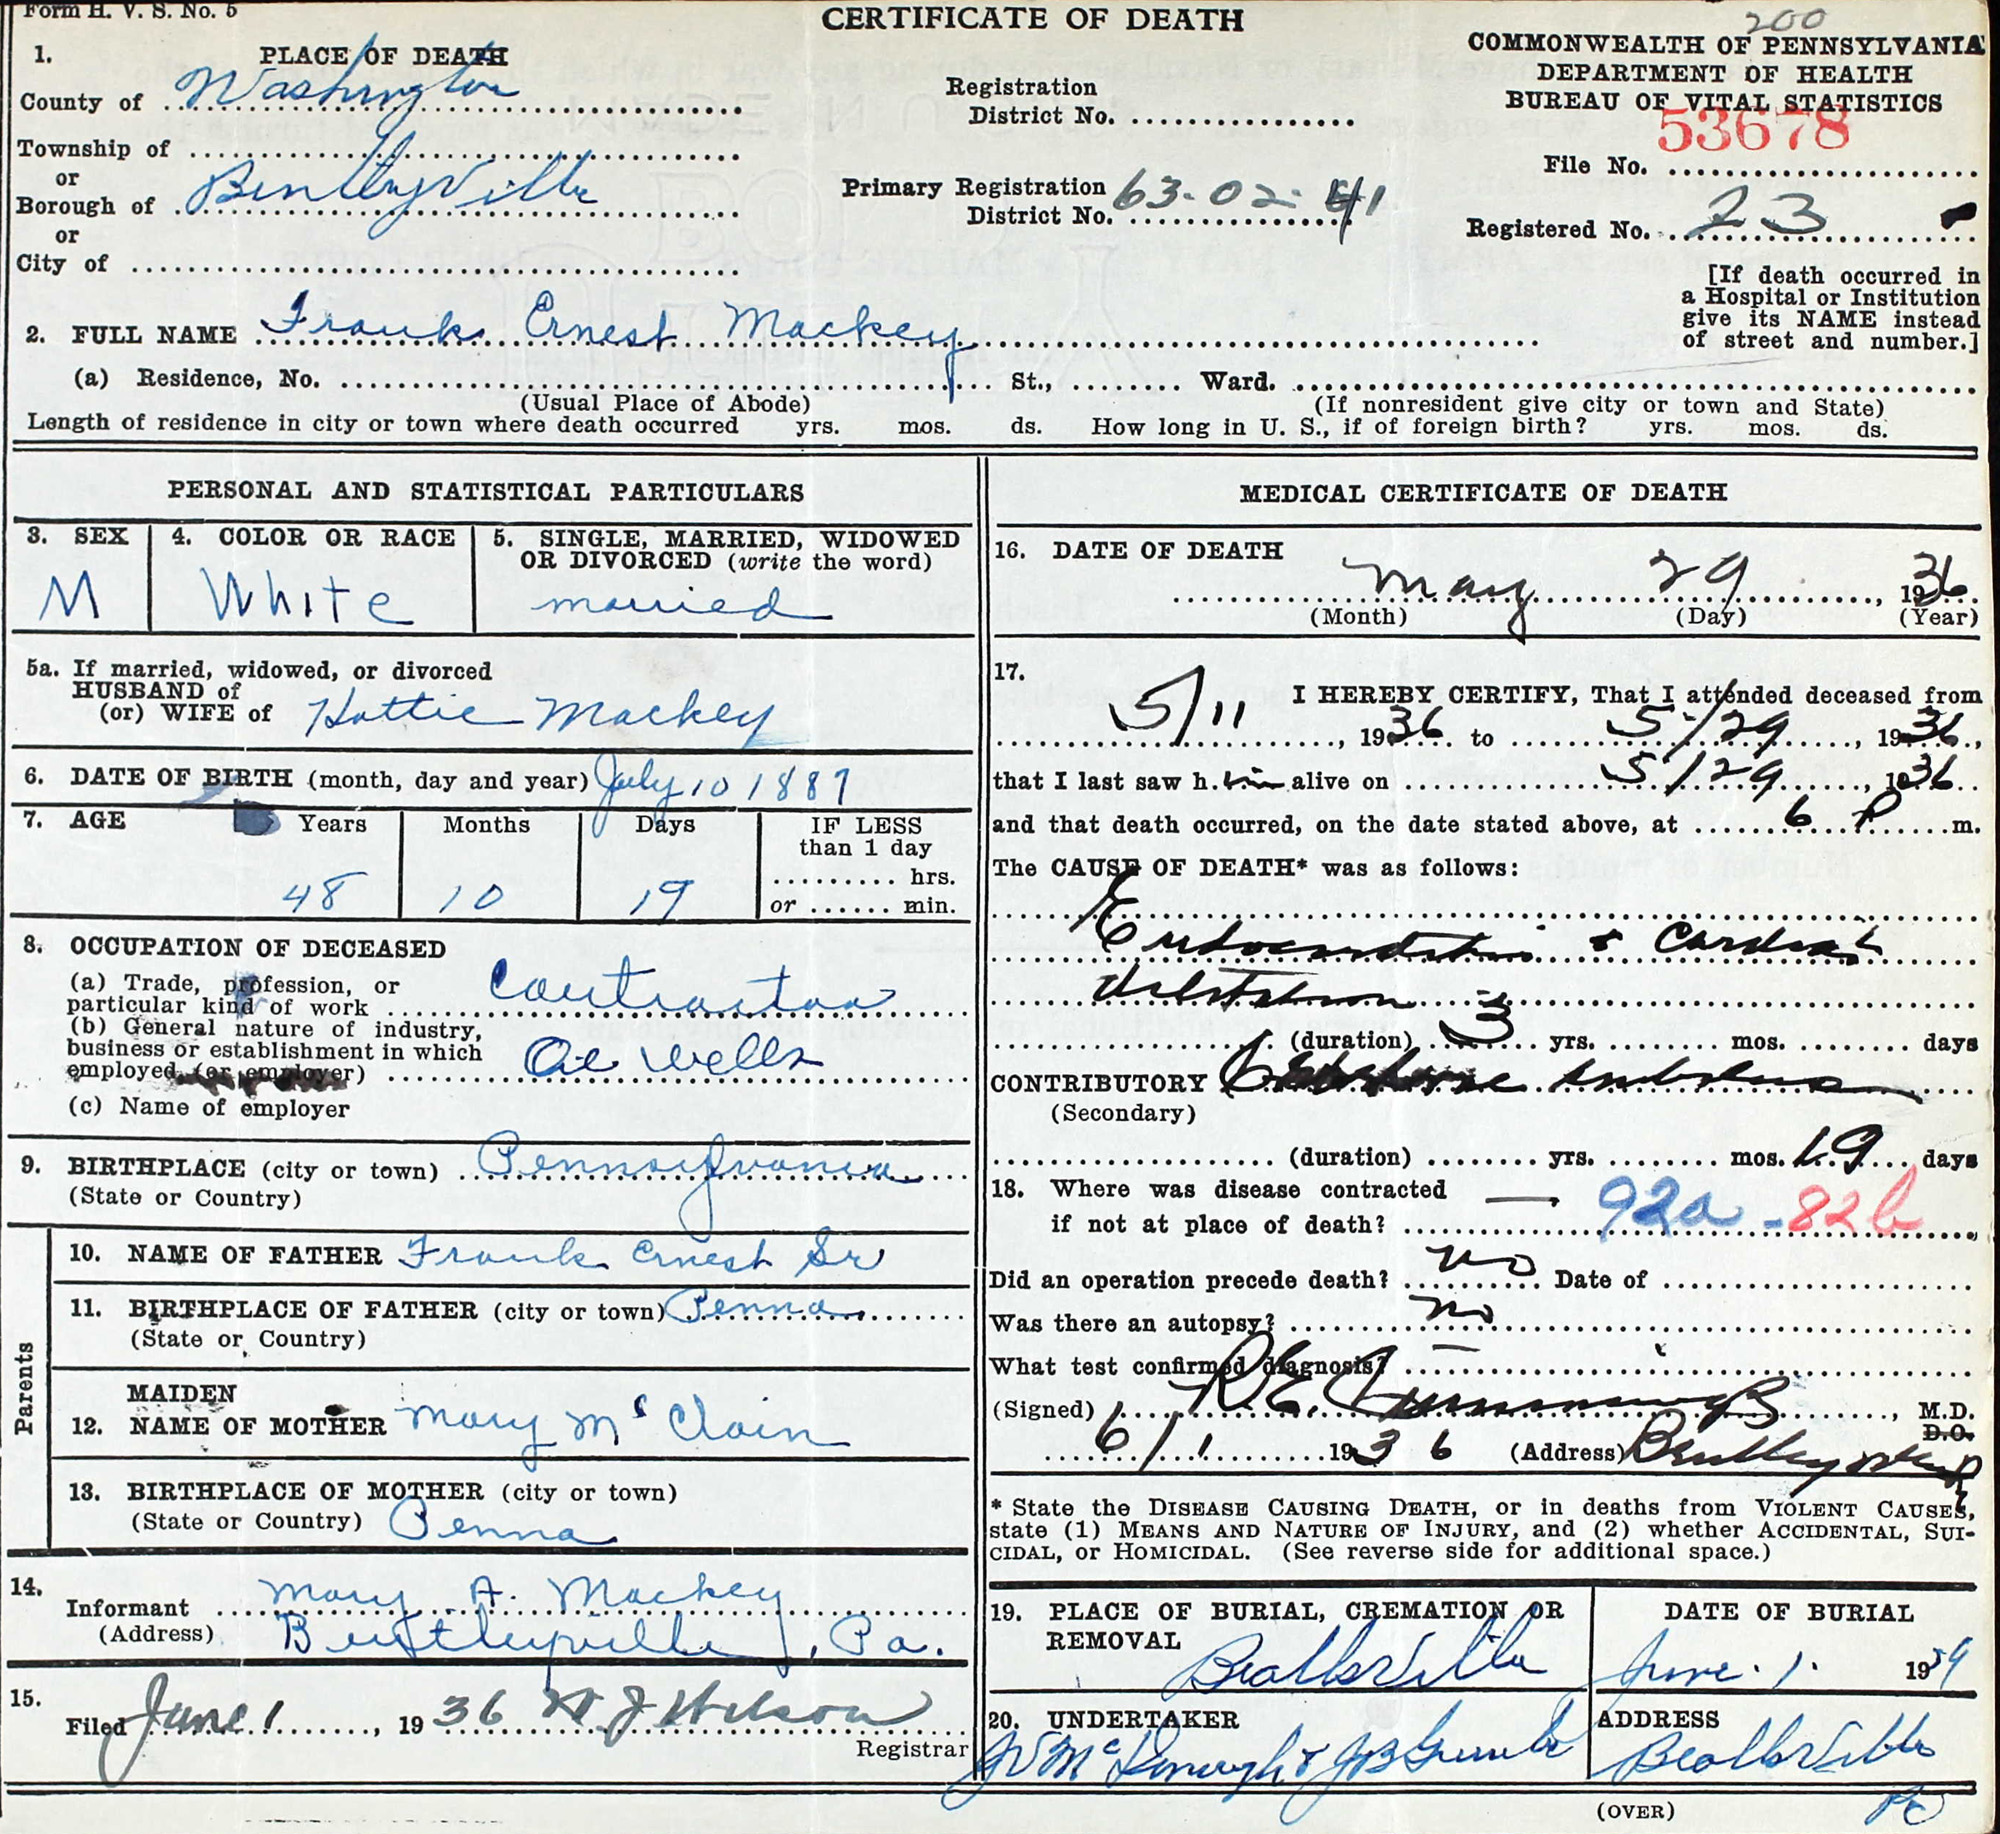 Form H. V. S. No. 5
CERTIFICATE OF DEATH
200
COMMONWEALTH OF PENNSYLVANIA
DEPARTMENT OF HEALTH
BUREAU OF VITAL STATISTICS
1. PLACE OF DEATH
County of Washington
Township of
or
Borough of Bentleyville
or
City of
Registration
District No.
Primary Registration
District No. 63-02-41
53678
File No.
Registered No. 23
[If death occurred in
a Hospital or Institution
give its NAME instead
of street and number.]
2. FULL NAME Frank Ernest Mackey
(a) Residence, No. St., Ward.
(Usual Place of Abode) (If nonresident give city or town and State)
Length of residence in city or town where death occurred yrs. mos. ds. How long in U. S., if of foreign birth? yrs. mos. ds.
PERSONAL AND STATISTICAL PARTICULARS
3. SEX
M
4. COLOR OR RACE
White
5. SINGLE, MARRIED, WIDOWED
OR DIVORCED (write the word)
married
5a. If married, widowed, or divorced
HUSBAND of
(or) WIFE of Hattie Mackey
6. DATE OF BIRTH (month, day and year) July 10 1887
7. AGE Years Months Days IF LESS
than 1 day
hrs.
48 10 19 or min.
8. OCCUPATION OF DECEASED
(a) Trade, profession, or
particular kind of work Contractor
(b) General nature of industry,
business or establishment in which
employed (or employer) Oil Wells
(c) Name of employer
9. BIRTHPLACE (city or town) Pennsylvania
(State or Country)
Parents
10. NAME OF FATHER Frank Ernest Sr
11. BIRTHPLACE OF FATHER (city or town) Penna
(State or Country)
MAIDEN
12. NAME OF MOTHER Mary McClain
13. BIRTHPLACE OF MOTHER (city or town)
(State or Country) Penna
14.
Informant Mary A. Mackey
(Address) Bentleyville, Pa.
15.
Filed June 1, 1936 Wilson
Registrar
MEDICAL CERTIFICATE OF DEATH
16. DATE OF DEATH
May 29, 1936
(Month) (Day) (Year)
17.
I HEREBY CERTIFY, That I attended deceased from
5/11, 1936 to 5/29, 1936,
that I last saw h im alive on 5/29, 1936
and that death occurred, on the date stated above, at 6 P m.
The CAUSE OF DEATH* was as follows:
Endocarditis & Cardiac
dilatation
(duration) 3 yrs. mos. days
CONTRIBUTORY embolus
(Secondary)
(duration) yrs. mos. 19 days
18. Where was disease contracted
if not at place of death? 92a - 82b
Did an operation precede death? no Date of
Was there an autopsy? no
What test confirmed diagnosis?
(Signed) R.E. Cummings, M.D.
D.O.
6/1 1936 (Address) Bentleyville Pa
* State the DISEASE CAUSING DEATH, or in deaths from VIOLENT CAUSES,
state (1) MEANS AND NATURE OF INJURY, and (2) whether ACCIDENTAL, SUI-
CIDAL, or HOMICIDAL. (See reverse side for additional space.)
19. PLACE OF BURIAL, CREMATION OR
REMOVAL
Beallsville
DATE OF BURIAL
June 1. 19
20. UNDERTAKER
ADDRESS
Beallsville
Pa
(OVER)